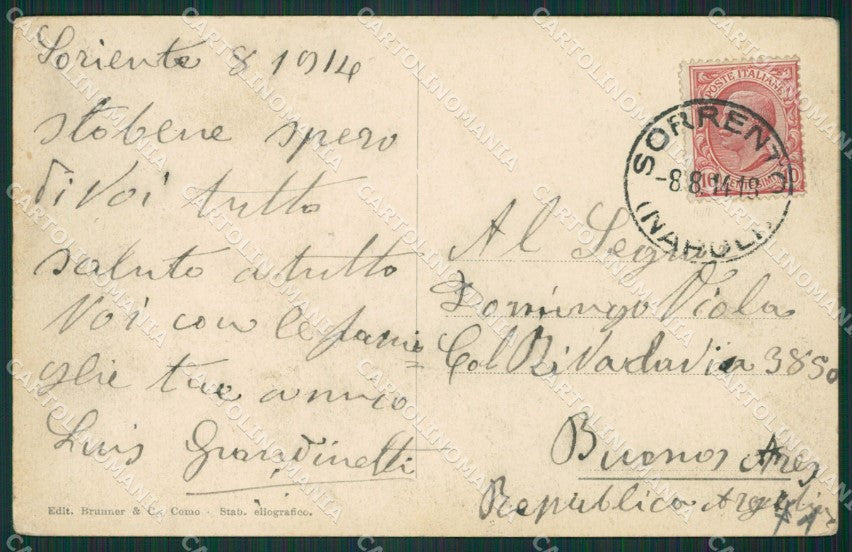 Soriento 8 1914
sto bene spero
di Voi tutto
saluto a tutto
Voi con le fami=
glie tuo amico
Luis Grandinetti
Edit. Brunner & C. Como - Stab. eliografico.
POSTE ITALIANE
SORRENTO
-8.8.14.19
(NAPOLI)
Al Segnor
Domingo Viola
Col Rivadavia 3850
Buenos Ares
Republica Argentina
CARTOLINOMANIA